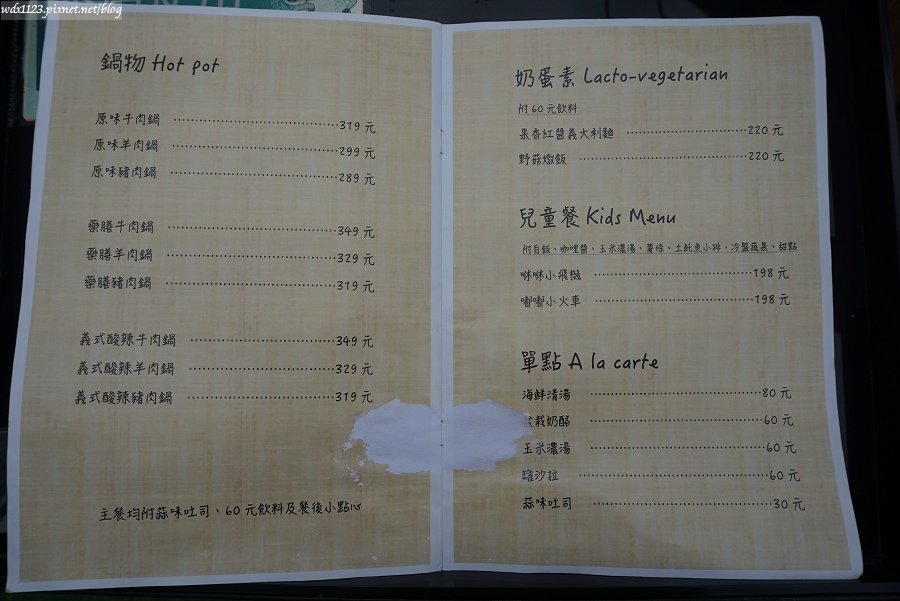 wdx1123.pixnet.net/blog
鍋物 Hot pot
原味牛肉鍋 319 元
原味羊肉鍋 299 元
原味豬肉鍋 289 元
藥膳牛肉鍋 349 元
藥膳羊肉鍋 329 元
藥膳豬肉鍋 319 元
義式酸辣牛肉鍋 349 元
義式酸辣羊肉鍋 329 元
義式酸辣豬肉鍋 319 元
主餐均附蒜味吐司、60 元飲料及餐後小點心
奶蛋素 Lacto-vegetarian
附 60 元飲料
果香紅醬義大利麵 220 元
野菇燉飯 220 元
兒童餐 Kids Menu
附白飯、咖哩醬、玉米濃湯、薯條、土魠魚小排、冷盤蔬果、甜點
咻咻小飛機 198 元
嘟嘟小火車 198 元
單點 A la carte
海鮮清湯 80 元
栽奶酪 60 元
玉米濃湯 60 元
罐沙拉 60 元
蒜味吐司 30 元